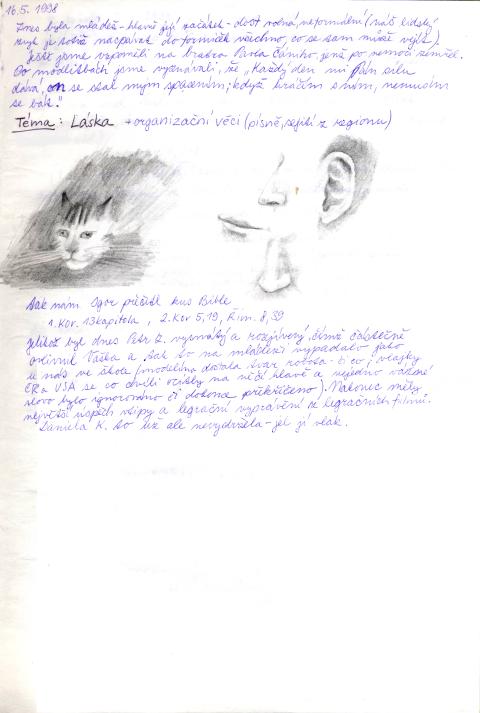 16.5. 1998
Dnes byla mládež - hlavně její začátek - dost volná, neformální (náš lidský
zvyk je totiž nacpávat do formiček všechno, co se tam může vejít).
Ještě jsme vzpomněli na bratra Pavla Černého, jenž po nemoci zemřel.
Po modlitbách jsme vyznávali, že „Každý den mi Pán sílu
dává, on se stal mým spasením; když kráčím s ním, nemusím
se bát."
Téma: Láska + organizační věci (písně, sejití z regionu)
Pak nám Igor přečetl kus Bible
1. Kor. 13 kapitola, 2. Kor 5,19, Řím. 8,39
Jelikož byl dnes Petr Z. vysmátý a rozjívený, čímž částečně
ovlivnil Vaška a tak to na mládeži vypadalo jako
u nás ve škole (modelína dostala tvar robota - či co; vlajky
ČR a USA se co chvíli ocitly na něčí hlavě a nejedno vážné
slovo bylo ignorováno či dokonce překřičeno). Nakonec měly
největší úspěch vtipy a legrační vyprávění ze legračních filmů.
Daniela K. to už ale nevydržela - jel jí vlak.